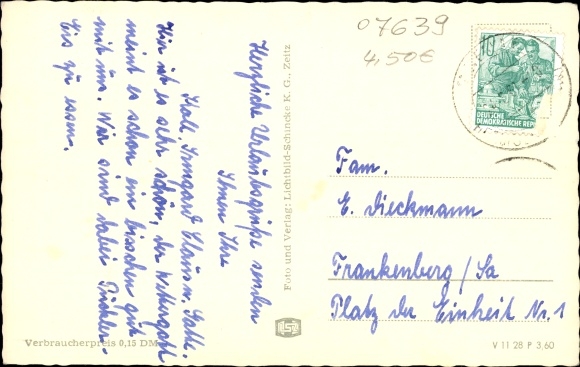 07639
4,50€
10
DEUTSCHE
DEMOKRATISCHE REP
Herzliche Urlaubsgrüße senden
Ihnen Ihre
Koll. Irmgard Claus u. Gatte.
Hier ist es sehr schön, der Wettergott
meint es schon ein bisschen gut
mit uns. Wir sind dabei
Eis zu essen.
Foto und Verlag: Lichtbild-Schincke K. G., Zeitz
Fam.
E. Dieckmann
Frankenberg/Sa
Platz der Einheit Nr. 1
Verbraucherpreis 0,15 DM
V 11 28 P 3,60